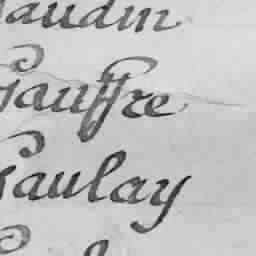 audin
Gauffre
Gaulay